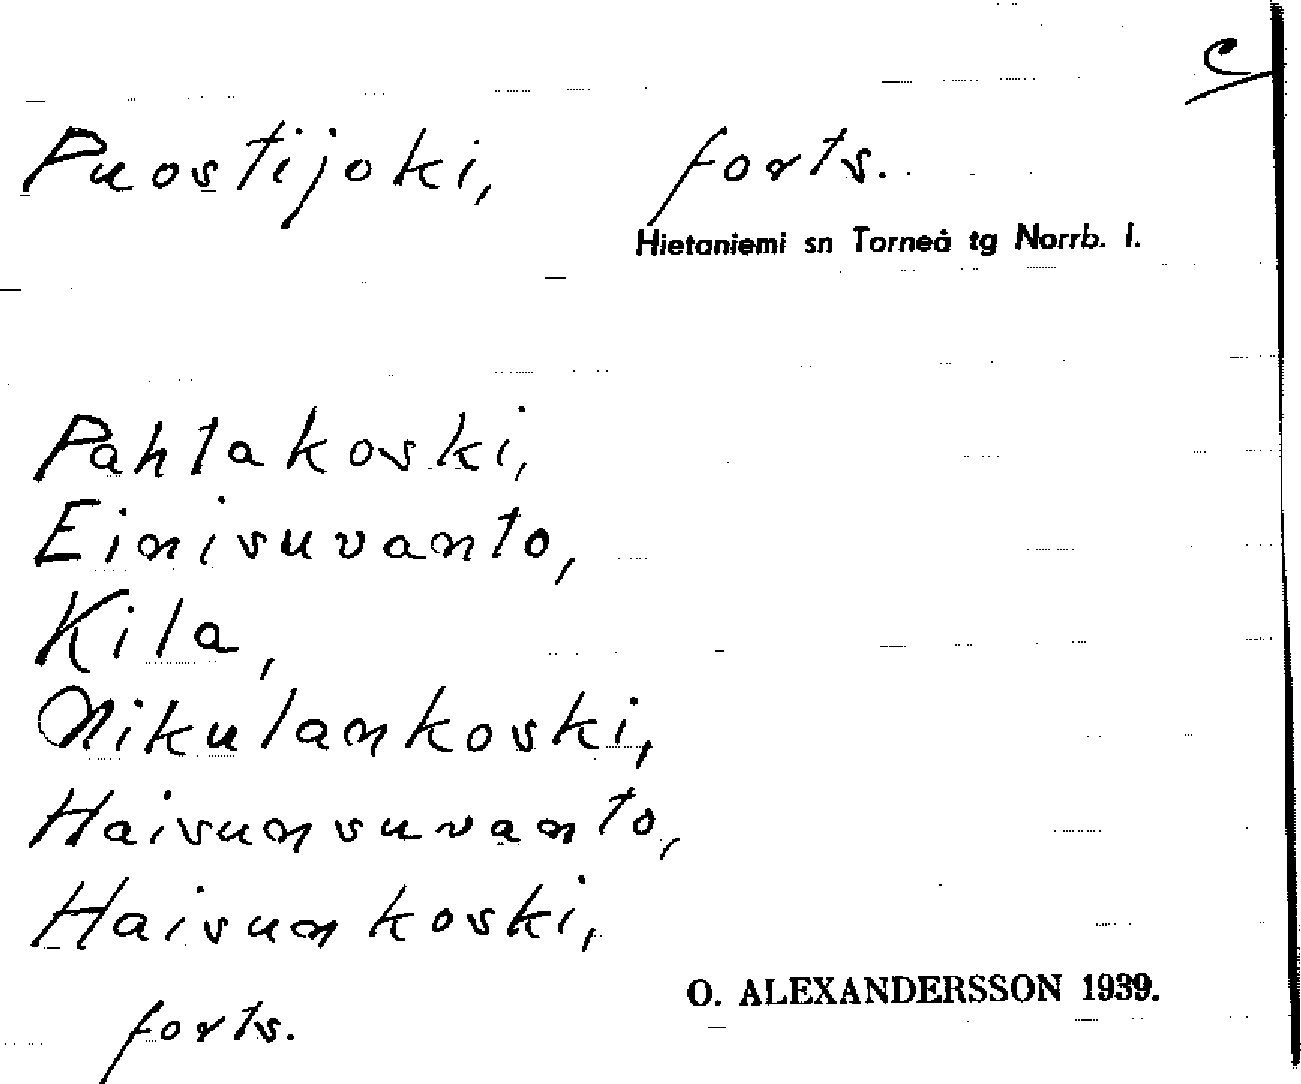 c
Puostijoki, forts.
Hietaniemi sn Torneå tg Norrb. l.
Pahtakoski,
Einisuvanto,
Kila,
Nikulankoski,
Haisunsuvanto,
Haisunkoski,
forts.
O. ALEXANDERSSON 1939.